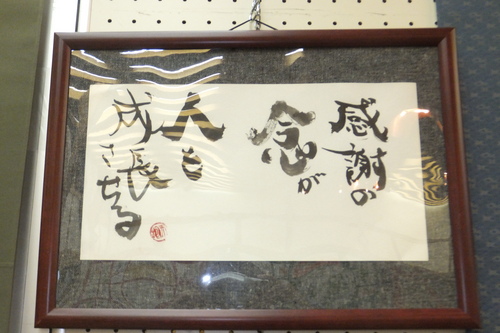 感謝の
念が
人を
成長
させる